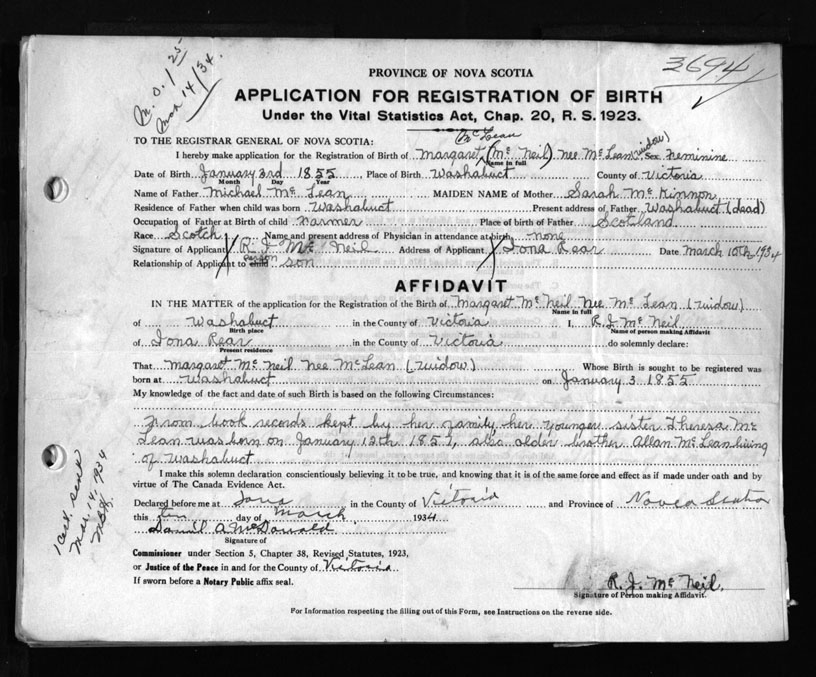 M.O. 1 25
Mar 14/34.
3694
PROVINCE OF NOVA SCOTIA
APPLICATION FOR REGISTRATION OF BIRTH
Under the Vital Statistics Act, Chap. 20, R. S. 1923.
McLean
TO THE REGISTRAR GENERAL OF NOVA SCOTIA:
I hereby make application for the Registration of Birth of Margaret (Mc Neil) nee McLean (widow) Sex Feminine
Name in full
Date of Birth January 3rd 1855 Place of Birth Washabuct County of Victoria
Month Day Year
Name of Father Michael Mc Lean MAIDEN NAME of Mother Sarah McKinnon
Residence of Father when child was born Washabuct Present address of Father Washabuct (dead)
Occupation of Father at Birth of child Farmer Place of birth of Father Scotland
Race Scotch Name and present address of Physician in attendance at birth none
Signature of Applicant R J Mc Neil Address of Applicant Iona Rear Date March 10th 1934
Relationship of Applicant to child person son
AFFIDAVIT
IN THE MATTER of the application for the Registration of the Birth of Margaret Mc Neil Nee Mc Lean (widow)
Name in full
of Washabuct in the County of Victoria I, R. J. Mc Neil
Birth place Name of person making Affidavit
of Iona Rear in the County of Victoria do solemnly declare:
Present residence
That Margaret Mc Neil Nee McLean (widow) Whose Birth is sought to be registered was
born at Washabuct on January 3 1855
My knowledge of the fact and date of such Birth is based on the following Circumstances:
From book records kept by her family, her younger sister Theresa Mc
Lean was born on January 12th 1857, also older brother Allan McLean living
of Washabuct
I make this solemn declaration conscientiously believing it to be true, and knowing that it is of the same force and effect as if made under oath and by
virtue of The Canada Evidence Act.
Declared before me at Iona in the County of Victoria and Province of Nova Scotia
this ten day of March 1934
Daniel A McDonald
Signature of
Commissioner under Section 5, Chapter 38, Revised Statutes, 1923,
or Justice of the Peace in and for the County of Victoria
If sworn before a Notary Public affix seal.
R. J. Mc Neil
Signature of Person making Affidavit.
For Information respecting the filling out of this Form, see Instructions on the reverse side.
1 Cert. sent
Mar. 14, 1934